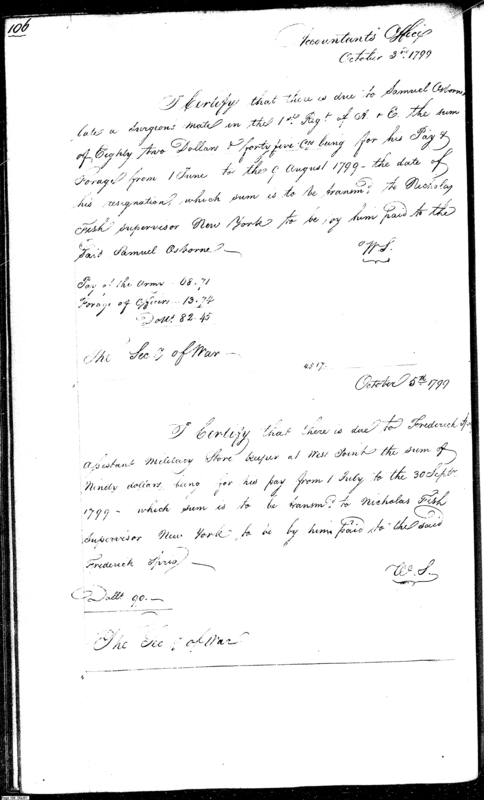 106
Accountants Office
October 3rd 1799
I Certify that there is due to Samuel Osborne
late a Surgeons mate in the 1st Regt of A & E. the sum
of Eighty two Dollars & forty five Cts being for his Pay &
Forage from 1 June to the 9 August 1799 - the date of
his resignation, which sum is to be transmd to Nicholas
Fish supervisor New York to be by him paid to the
said Samuel Osborne
W. S.
Pay of the Army .. 68.71
Forage of Officers ... 13.74
Dolls 82.45
The Secy of War
4517
October 5th 1799
I Certify that there is due to Frederick
Assistant Military Store keeper at West Point the sum of
Ninety dollars being for his pay from 1 July to the 30 Septr
1799 - which sum is to be transmd to Nicholas Fish
Supervisor New York, to be by him paid to the said
Frederick
W. S.
Dolls 90.
The Secy of War